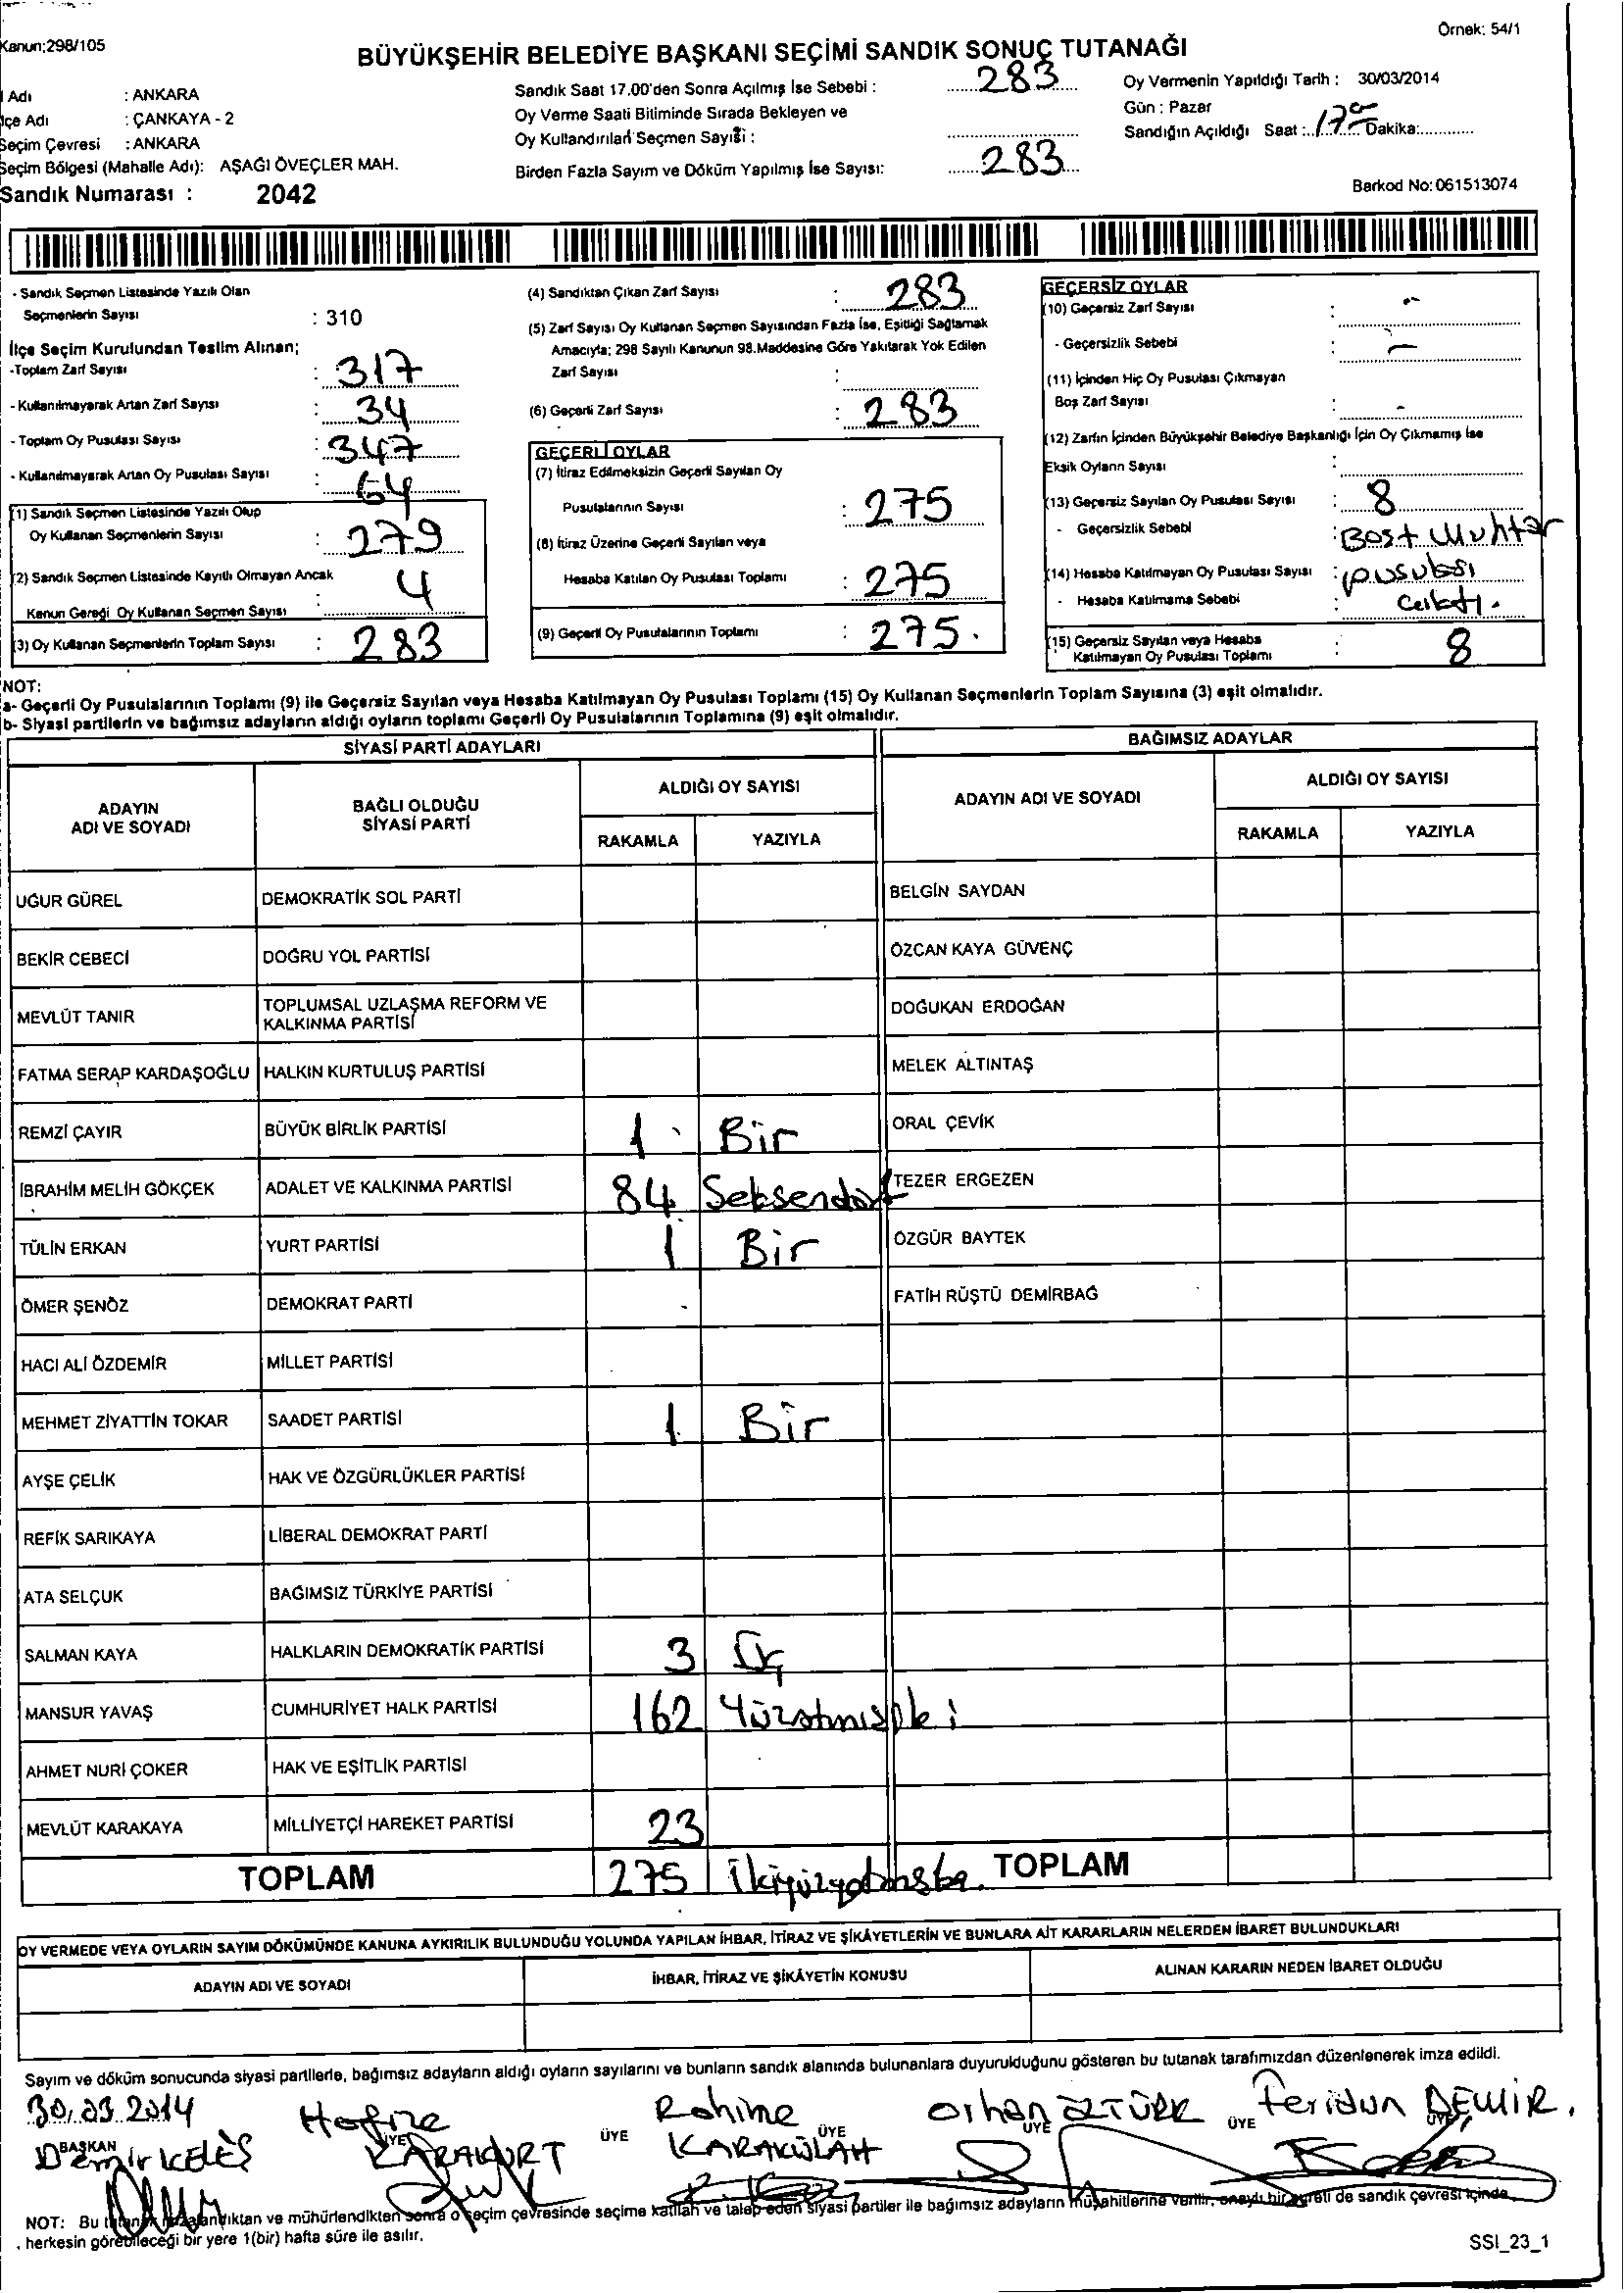 Kanun;298/105
Örnek: 54/1
BÜYÜKŞEHİR BELEDİYE BAŞKANI SEÇİMİ SANDIK SONUÇ TUTANAĞI
Adı : ANKARA
İlçe Adı : ÇANKAYA - 2
Seçim Çevresi : ANKARA
Seçim Bölgesi (Mahalle Adı): AŞAĞI ÖVEÇLER MAH.
Sandık Numarası : 2042
Sandık Saat 17.00'den Sonra Açılmış İse Sebebi : 283
Oy Verme Saati Bitiminde Sırada Bekleyen ve
Oy Kullandırılan Seçmen Sayısı :
Birden Fazla Sayım ve Döküm Yapılmış İse Sayısı: 283
Oy Vermenin Yapıldığı Tarih : 30/03/2014
Gün : Pazar
Sandığın Açıldığı Saat : 17 Dakika:
Barkod No: 061513074
- Sandık Seçmen Listesinde Yazılı Olan
Seçmenlerin Sayısı : 310
İlçe Seçim Kurulundan Teslim Alınan;
-Toplam Zarf Sayısı : 317
- Kullanılmayarak Artan Zarf Sayısı : 34
- Toplam Oy Pusulası Sayısı : 347
- Kullanılmayarak Artan Oy Pusulası Sayısı : 64
(1) Sandık Seçmen Listesinde Yazılı Olup
Oy Kullanan Seçmenlerin Sayısı : 279
(2) Sandık Seçmen Listesinde Kayıtlı Olmayan Ancak
Kanun Gereği Oy Kullanan Seçmen Sayısı : 4
(3) Oy Kullanan Seçmenlerin Toplam Sayısı : 283
(4) Sandıktan Çıkan Zarf Sayısı : 283
(5) Zarf Sayısı Oy Kullanan Seçmen Sayısından Fazla İse, Eşitliği Sağlamak
Amacıyla; 298 Sayılı Kanunun 98.Maddesine Göre Yakılarak Yok Edilen
Zarf Sayısı :
(6) Geçerli Zarf Sayısı : 283
GEÇERLİ OYLAR
(7) İtiraz Edilmeksizin Geçerli Sayılan Oy
Pusulalarının Sayısı : 275
(8) İtiraz Üzerine Geçerli Sayılan veya
Hesaba Katılan Oy Pusulası Toplamı : 275
(9) Geçerli Oy Pusulalarının Toplamı : 275.
GEÇERSİZ OYLAR
(10) Geçersiz Zarf Sayısı : -
- Geçersizlik Sebebi : -
(11) İçinden Hiç Oy Pusulası Çıkmayan
Boş Zarf Sayısı : -
(12) Zarfın İçinden Büyükşehir Belediye Başkanlığı İçin Oy Çıkmamış İse
Eksik Oyların Sayısı :
(13) Geçersiz Sayılan Oy Pusulası Sayısı : 8
- Geçersizlik Sebebi : Bost Muhtar
(14) Hesaba Katılmayan Oy Pusulası Sayısı : pusulası
- Hesaba Katılmama Sebebi :
(15) Geçersiz Sayılan veya Hesaba
Katılmayan Oy Pusulası Toplamı : 8
NOT:
a- Geçerli Oy Pusulalarının Toplamı (9) ile Geçersiz Sayılan veya Hesaba Katılmayan Oy Pusulası Toplamı (15) Oy Kullanan Seçmenlerin Toplam Sayısına (3) eşit olmalıdır.
b- Siyasi partilerin ve bağımsız adayların aldığı oyların toplamı Geçerli Oy Pusulalarının Toplamına (9) eşit olmalıdır.
SİYASİ PARTİ ADAYLARI BAĞIMSIZ ADAYLAR
ADAYIN ADI VE SOYADI BAĞLI OLDUĞU SİYASİ PARTİ ALDIĞI OY SAYISI ADAYIN ADI VE SOYADI ALDIĞI OY SAYISI
RAKAMLA YAZIYLA RAKAMLA YAZIYLA
UĞUR GÜREL DEMOKRATİK SOL PARTİ BELGİN SAYDAN
BEKİR CEBECİ DOĞRU YOL PARTİSİ ÖZCAN KAYA GÜVENÇ
MEVLÜT TANIR TOPLUMSAL UZLAŞMA REFORM VE KALKINMA PARTİSİ DOĞUKAN ERDOĞAN
FATMA SERAP KARDAŞOĞLU HALKIN KURTULUŞ PARTİSİ MELEK ALTINTAŞ
REMZİ ÇAYIR BÜYÜK BİRLİK PARTİSİ 1 Bir ORAL ÇEVİK
İBRAHİM MELİH GÖKÇEK ADALET VE KALKINMA PARTİSİ 84 Seksendört TEZER ERGEZEN
TÜLİN ERKAN YURT PARTİSİ 1 Bir ÖZGÜR BAYTEK
ÖMER ŞENÖZ DEMOKRAT PARTİ FATİH RÜŞTÜ DEMİRBAĞ
HACI ALİ ÖZDEMİR MİLLET PARTİSİ
MEHMET ZİYATTİN TOKAR SAADET PARTİSİ 1 Bir
AYŞE ÇELİK HAK VE ÖZGÜRLÜKLER PARTİSİ
REFİK SARIKAYA LİBERAL DEMOKRAT PARTİ
ATA SELÇUK BAĞIMSIZ TÜRKİYE PARTİSİ
SALMAN KAYA HALKLARIN DEMOKRATİK PARTİSİ 3 Üç
MANSUR YAVAŞ CUMHURİYET HALK PARTİSİ 162 Yüzatmışiki
AHMET NURİ ÇOKER HAK VE EŞİTLİK PARTİSİ
MEVLÜT KARAKAYA MİLLİYETÇİ HAREKET PARTİSİ 23
TOPLAM 275 TOPLAM
OY VERMEDE VEYA OYLARIN SAYIM DÖKÜMÜNDE KANUNA AYKIRILIK BULUNDUĞU YOLUNDA YAPILAN İHBAR, İTİRAZ VE ŞİKÂYETLERİN VE BUNLARA AİT KARARLARIN NELERDEN İBARET BULUNDUKLARI
ADAYIN ADI VE SOYADI İHBAR, İTİRAZ VE ŞİKÂYETİN KONUSU ALINAN KARARIN NEDEN İBARET OLDUĞU
Sayım ve döküm sonucunda siyasi partilerle, bağımsız adayların aldığı oyların sayılarını ve bunların sandık alanında bulunanlara duyurulduğunu gösteren bu tutanak tarafımızdan düzenlenerek imza edildi.
30.03.2014 Hafize Rahime Orhan ÖZTÜRK Feridun DEMİR.
BAŞKAN ÜYE ÜYE ÜYE ÜYE ÜYE ÜYE
Demir KELEŞ KARAKURT KARAKÜLAH
NOT: Bu tutanak imzalandıktan ve mühürlendikten sonra o seçim çevresinde seçime katılan ve talep eden siyasi partiler ile bağımsız adayların müşahitlerine verilir, onaylı bir sureti de sandık çevresi içinde,
herkesin görebileceği bir yere 1(bir) hafta süre ile asılır.
SSI_23_1